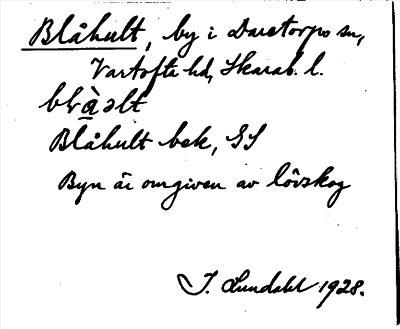 Blåhult, by i Daretorps sn,
Vartofta hd, Skarab. l.
Blåhult bek, GS
Byn är omgiven av lövskog
I. Lundahl 1928.